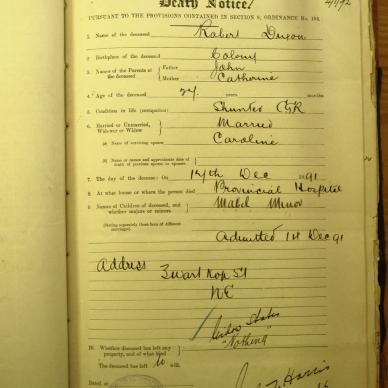 Death Notice.
PURSUANT TO THE PROVISIONS CONTAINED IN SECTION 8, ORDINANCE No. 104.
1. Name of the deceased Robert Duxon
2. Birthplace of the deceased Colony
3. Names of the Parents of the deceased Father John
Mother Catherine
4. Age of the deceased 27 years months
5. Condition in life (occupation) Shunter CGR
6. Married or Unmarried, Widower or Widow Married
(a) Name of surviving spouse Caroline
(b) Name or names and approximate date of death of previous spouse or spouses
7. The day of the decease: On 14th Dec 1891
8. At what house or where the person died Provincial Hospital
9. Names of Children of deceased, and whether majors or minors Mabel Minor
(Stating separately those born of different marriages)
Admitted 1st Dec 91
Address Zwart Kop St
NE
Widow States
10. Whether deceased has left any property, and of what kind "Nothing"
The deceased has left no will.
Dated at
Harris